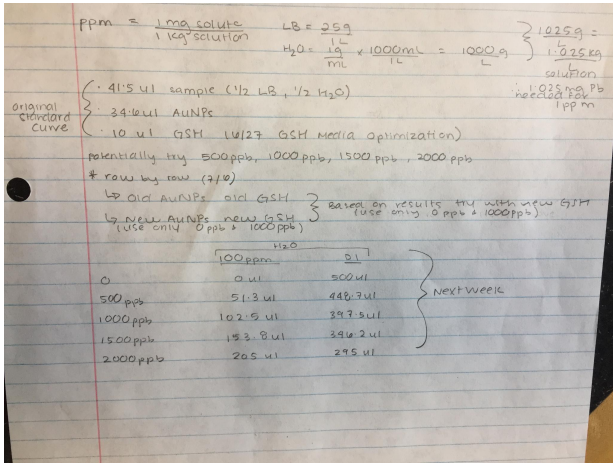 ppm = 1 mg solute / 1 kg solution
LB = 25g / 1L
H2O = 1g / mL x 1000mL / 1L = 1000g / L
1025g / L =
1.025 kg / L
solution
∴ 1.025 mg Pb
needed for
1ppm
original
standard
curve
· 41.5 ul sample (1/2 LB, 1/2 H2O)
· 34.6ul AuNPs
· 10 ul GSH (6/27 GSH Media Optimization)
potentially try 500ppb, 1000ppb, 1500ppb, 2000ppb
* row by row (7/6)
↳ Old AuNPs old GSH
↳ New AuNPs new GSH
(use only 0ppb + 1000ppb)
Based on results try with new GSH
(use only 0ppb + 1000ppb)
H2O
100ppm DI
0 0ul 500ul
500ppb 51.3ul 448.7ul
1000ppb 102.5ul 397.5ul
1500ppb 153.8ul 346.2ul
2000ppb 205ul 295ul
Next week